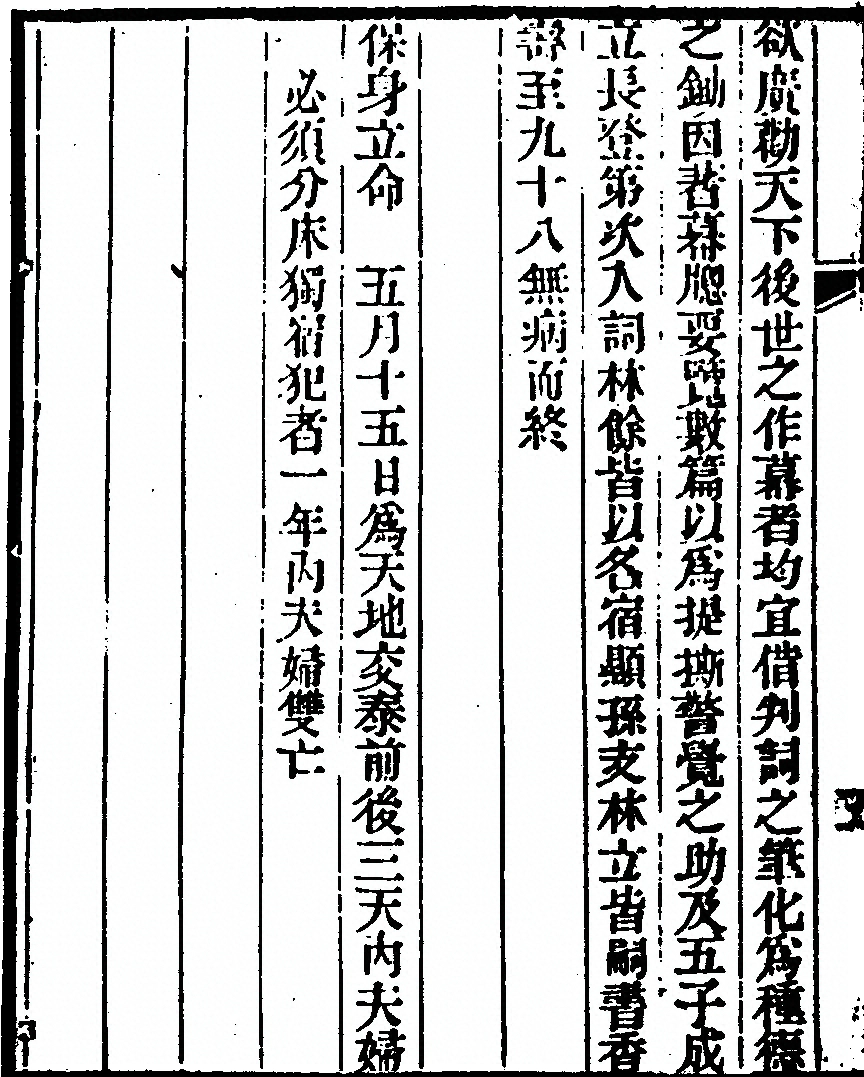 欲廣勸天下後世之作幕者均宜借判詞之筆化爲種德
之鋤因著幕牕要覽數篇以爲提撕警覺之助及五子成
立長登第次入詞林餘皆以名宿顯孫支林立皆嗣書香
壽至九十八無病而終
保身立命　五月十五日爲天地交泰前後三天內夫婦
必須分床獨宿犯者一年內夫婦雙亡